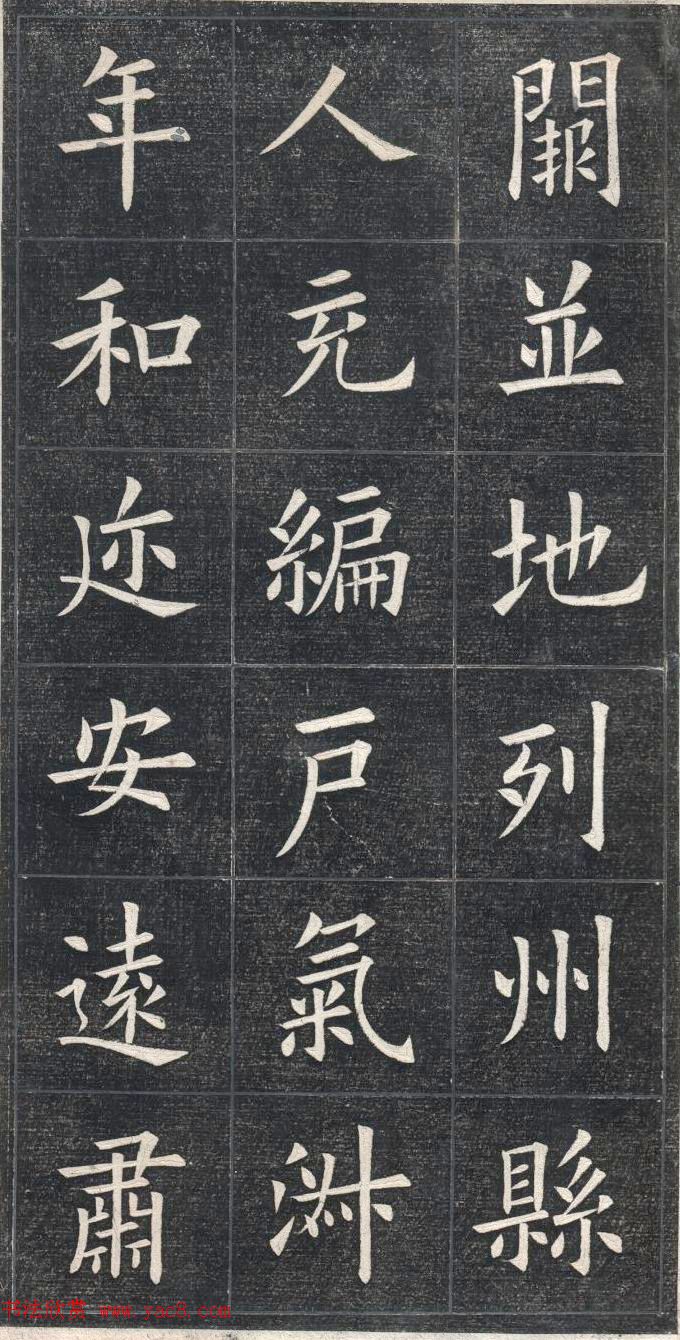 闕並地列州縣
人充編戶氣淑
年和迩安遠肅
书法欣赏 www.yac8.com